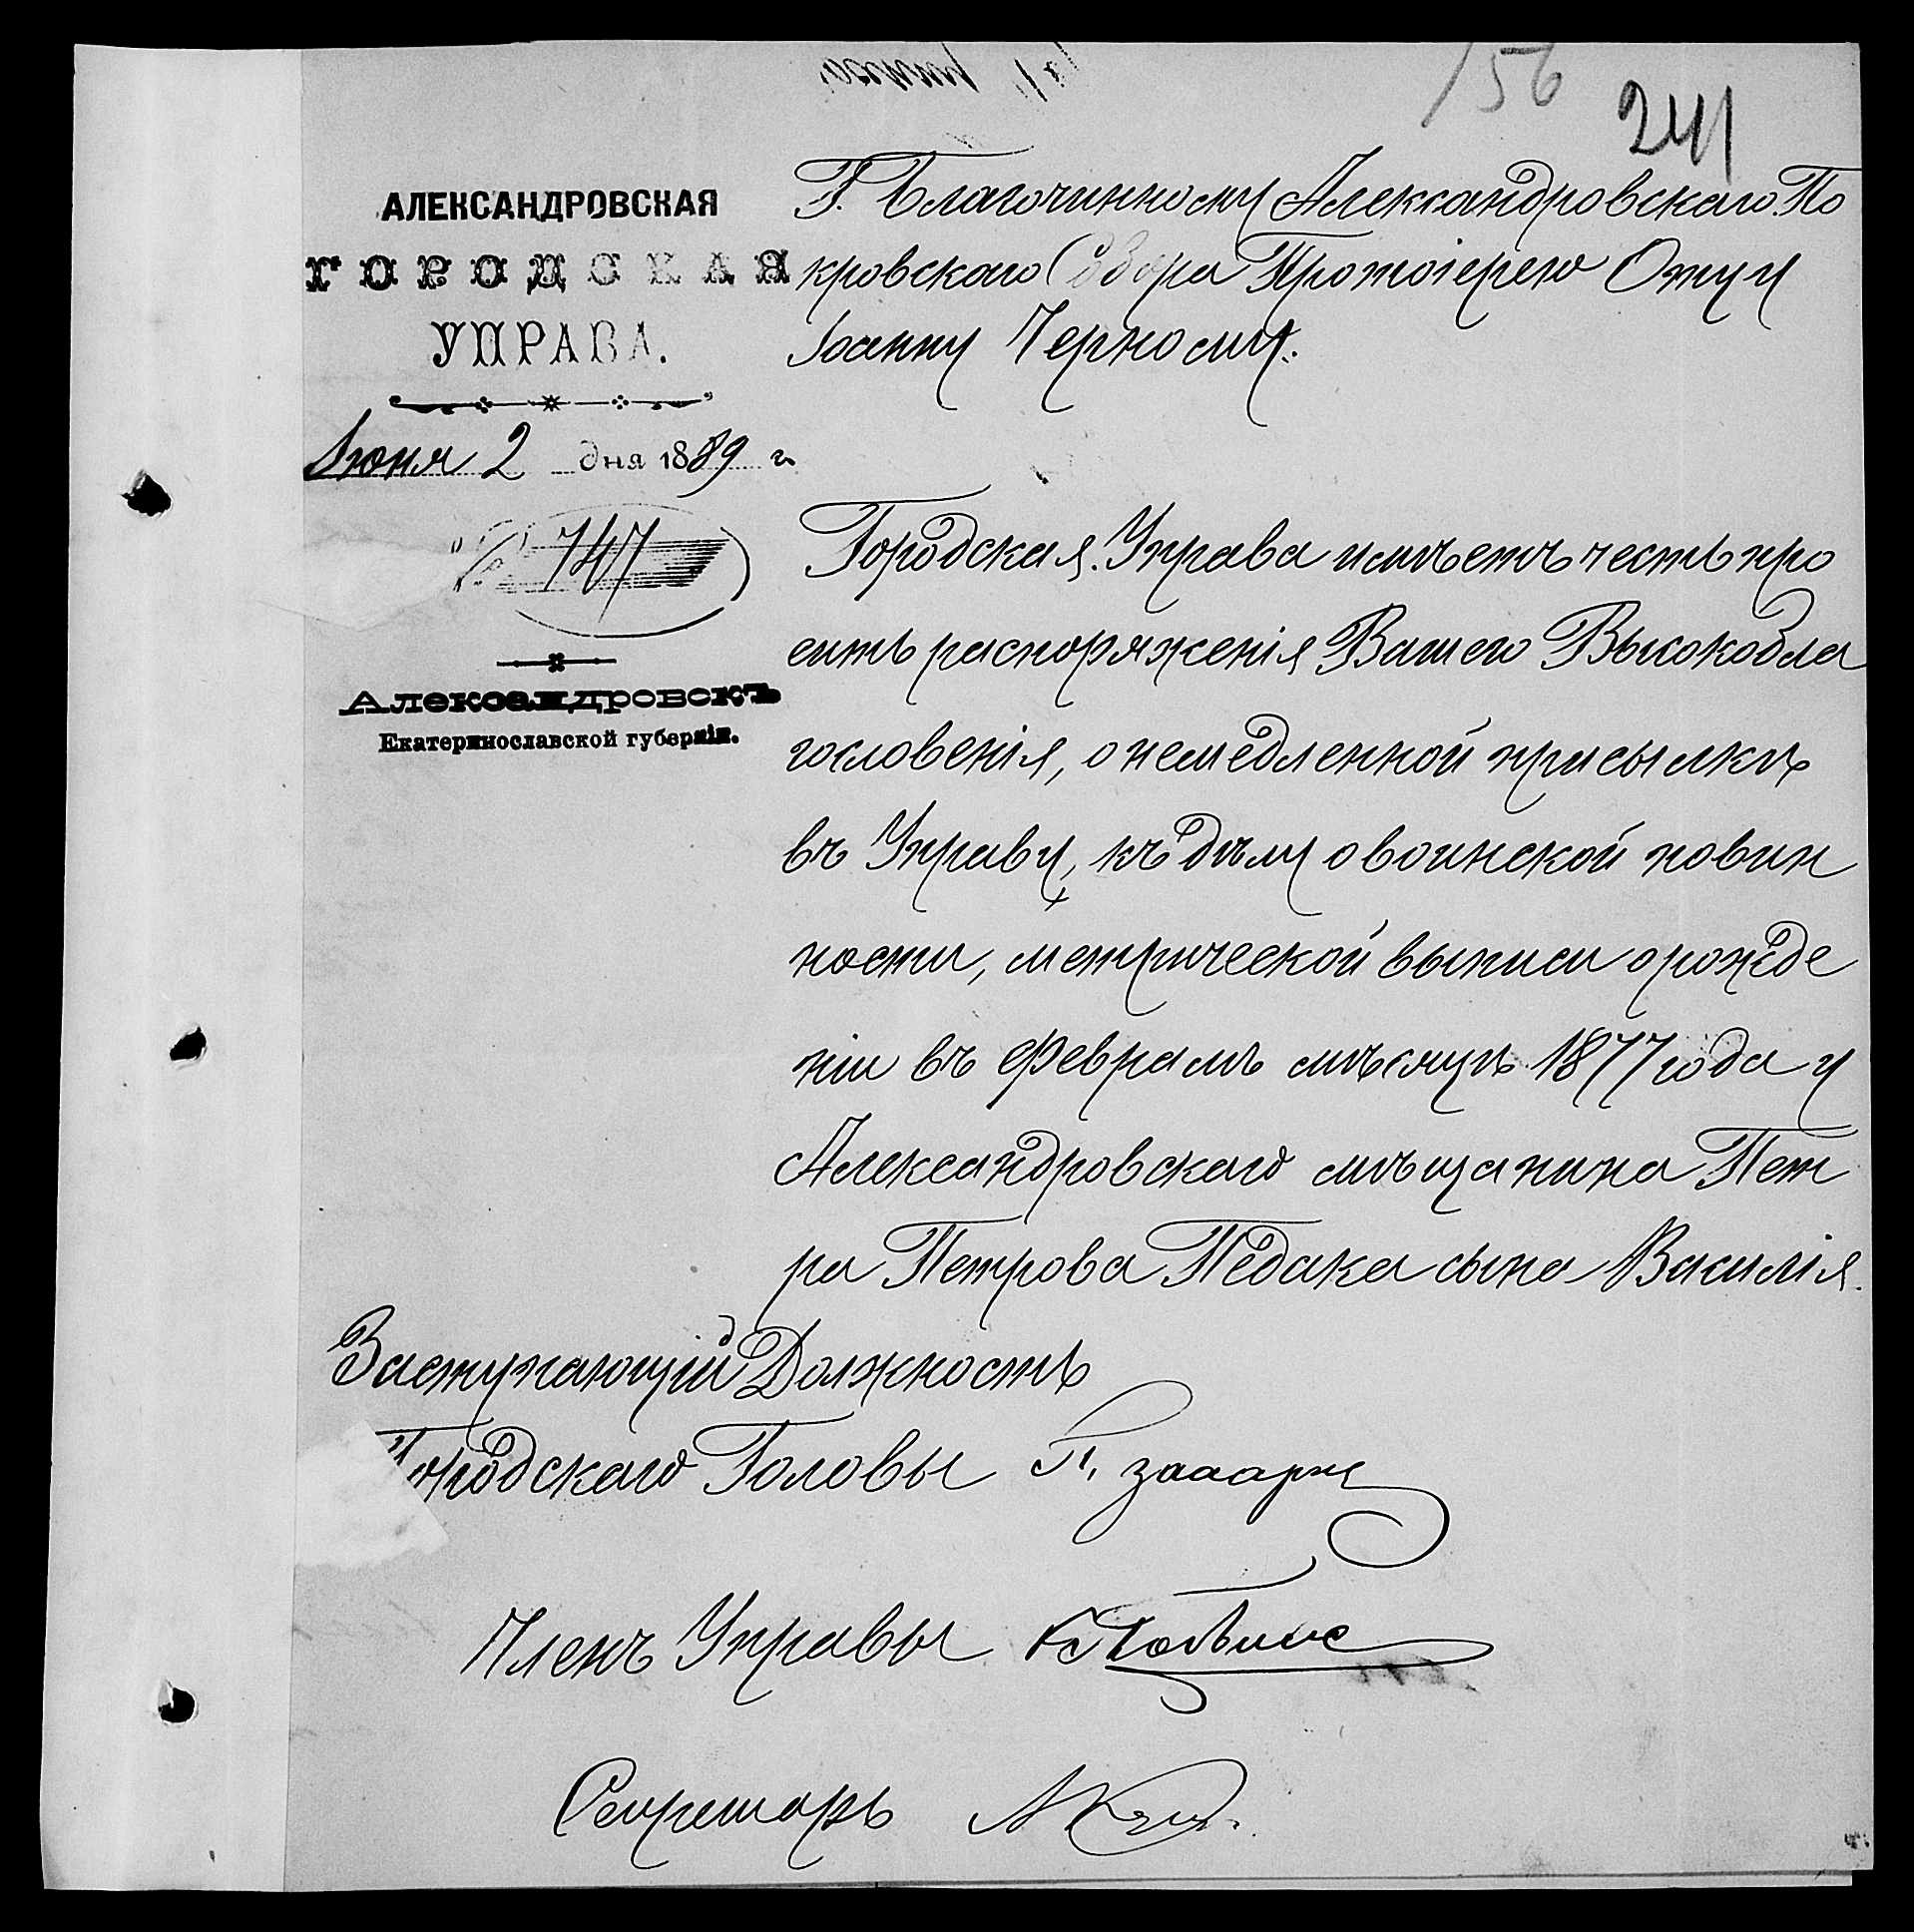 156
241
АЛЕКСАНДРОВСКАЯ
ГОРОДСКАЯ
УПРАВА.
Іюня 2 дня 1889 г.
747
Александровскъ
Екатеринославской губерніи.
Г. Благочинному Александровскаго По
кровскаго Собора Протоіерею Отцу
Іоанну Черному.
Городская Управа имѣетъ честь про
сить распоряженія Вашего Высокобла
гословенія, о немедленной присылкѣ
въ Управу, къ дѣлу о воинской повин
ности, метрической выписи о рожде
ніи въ Февралѣ мѣсяцѣ 1877 года у
Александровскаго мѣщанина Пет
ра Петрова Педака сына Василія.
Заступающій Должность
Городскаго Головы
Членъ Управы
Секретарь